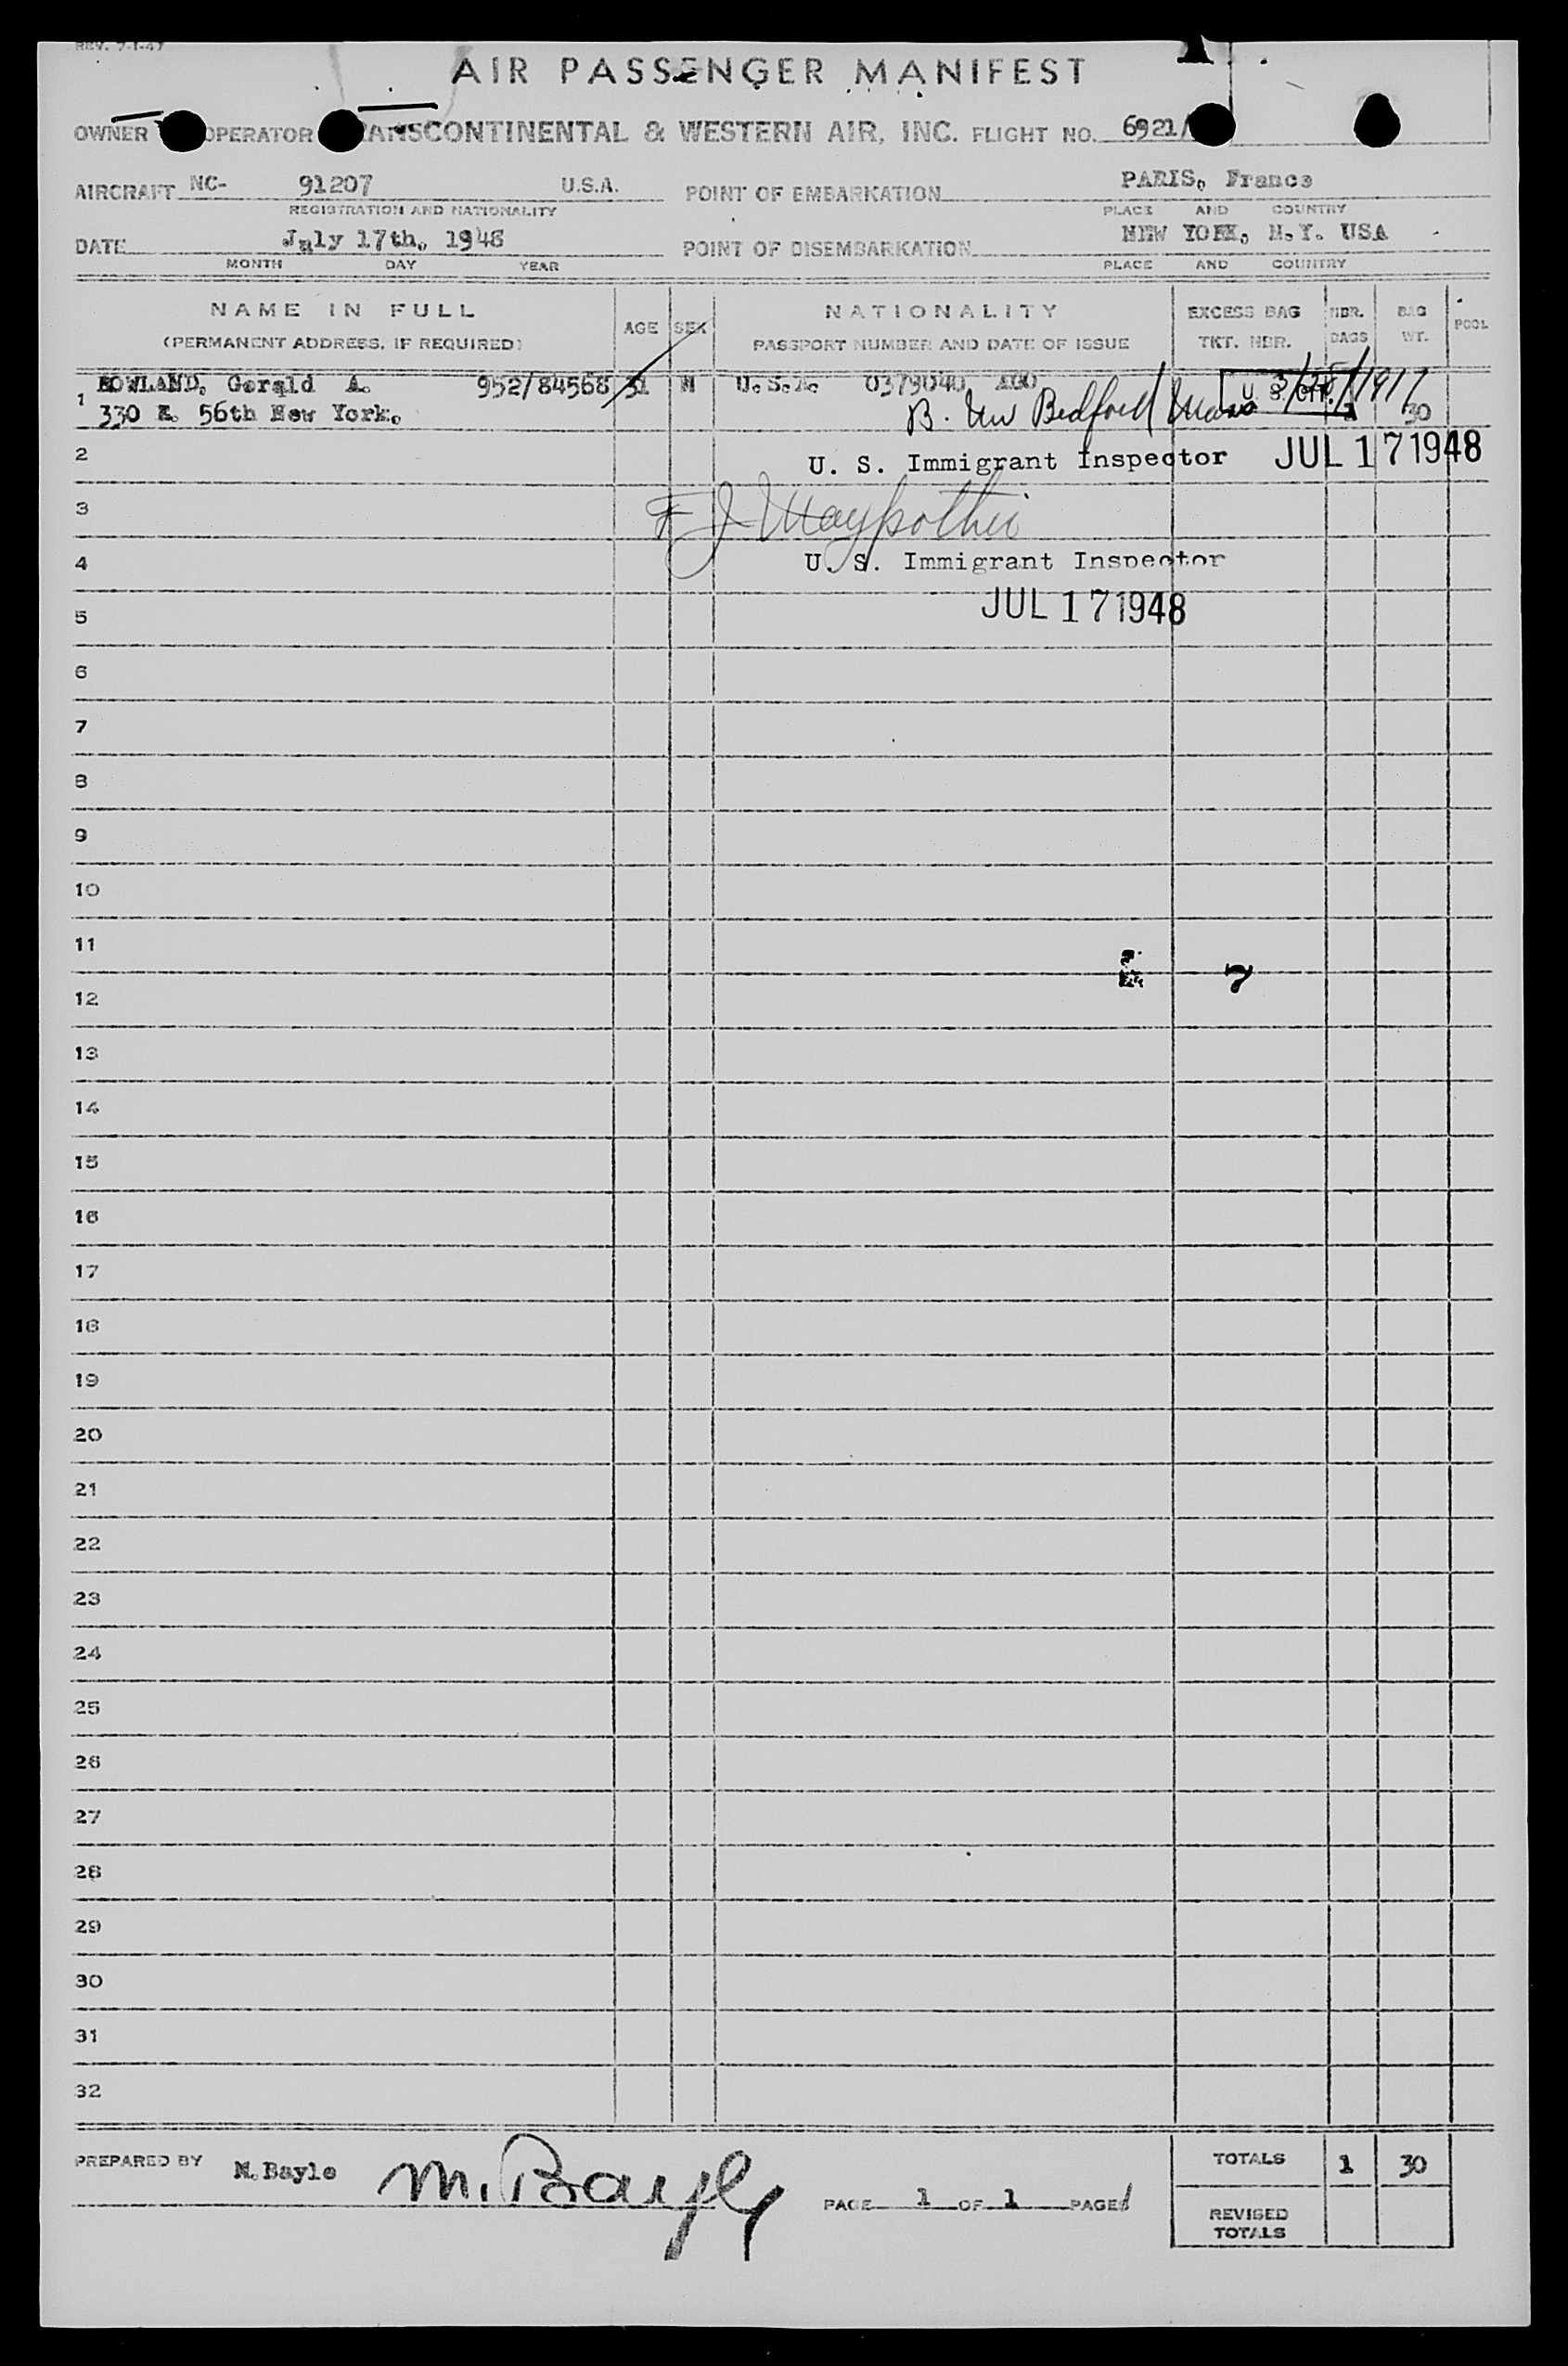 REV. 7-1-47
AIR PASSENGER MANIFEST
OWNER OPERATOR TRANSCONTINENTAL & WESTERN AIR, INC. FLIGHT NO. 6921/
AIRCRAFT NC- 91207 U.S.A. POINT OF EMBARKATION PARIS, France
REGISTRATION AND NATIONALITY PLACE AND COUNTRY
DATE July 17th, 1948 POINT OF DISEMBARKATION NEW YORK, N.Y. USA
MONTH DAY YEAR PLACE AND COUNTRY
NAME IN FULL AGE SEX NATIONALITY EXCESS BAG NBR. BAG POOL
(PERMANENT ADDRESS, IF REQUIRED) PASSPORT NUMBER AND DATE OF ISSUE TKT. NBR. BAGS WT.
1 Gerald A. 952/84568 31 M U.S.A. 0379040 AGO U S CIT. 1917
330 E. 56th New York. B. New Bedford Mass 1 30
2 U. S. Immigrant Inspector JUL 17 1948
3 F J
4 U. S. Immigrant Inspector
5 JUL 17 1948
6
7
8
9
10
11
12 7
13
14
15
16
17
18
19
20
21
22
23
24
25
26
27
28
29
30
31
32
PREPARED BY M. Bayle M. Bayle PAGE 1 OF 1 PAGES TOTALS 1 30
REVISED
TOTALS